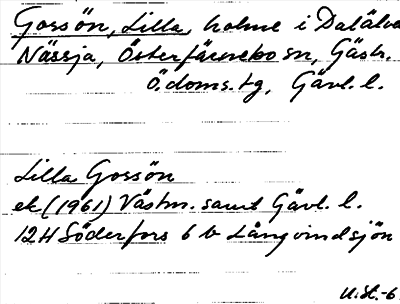 Gossön, Lilla, holme i Dalälve
Nässja, Österfärnebo sn, Gästr.
Ö. doms.tg, Gävl. l.
Lilla Gossön
ek (1961) Västm. samt Gävl. l.
12H Söderfors 6 b Långvindsjön
U.St.-6